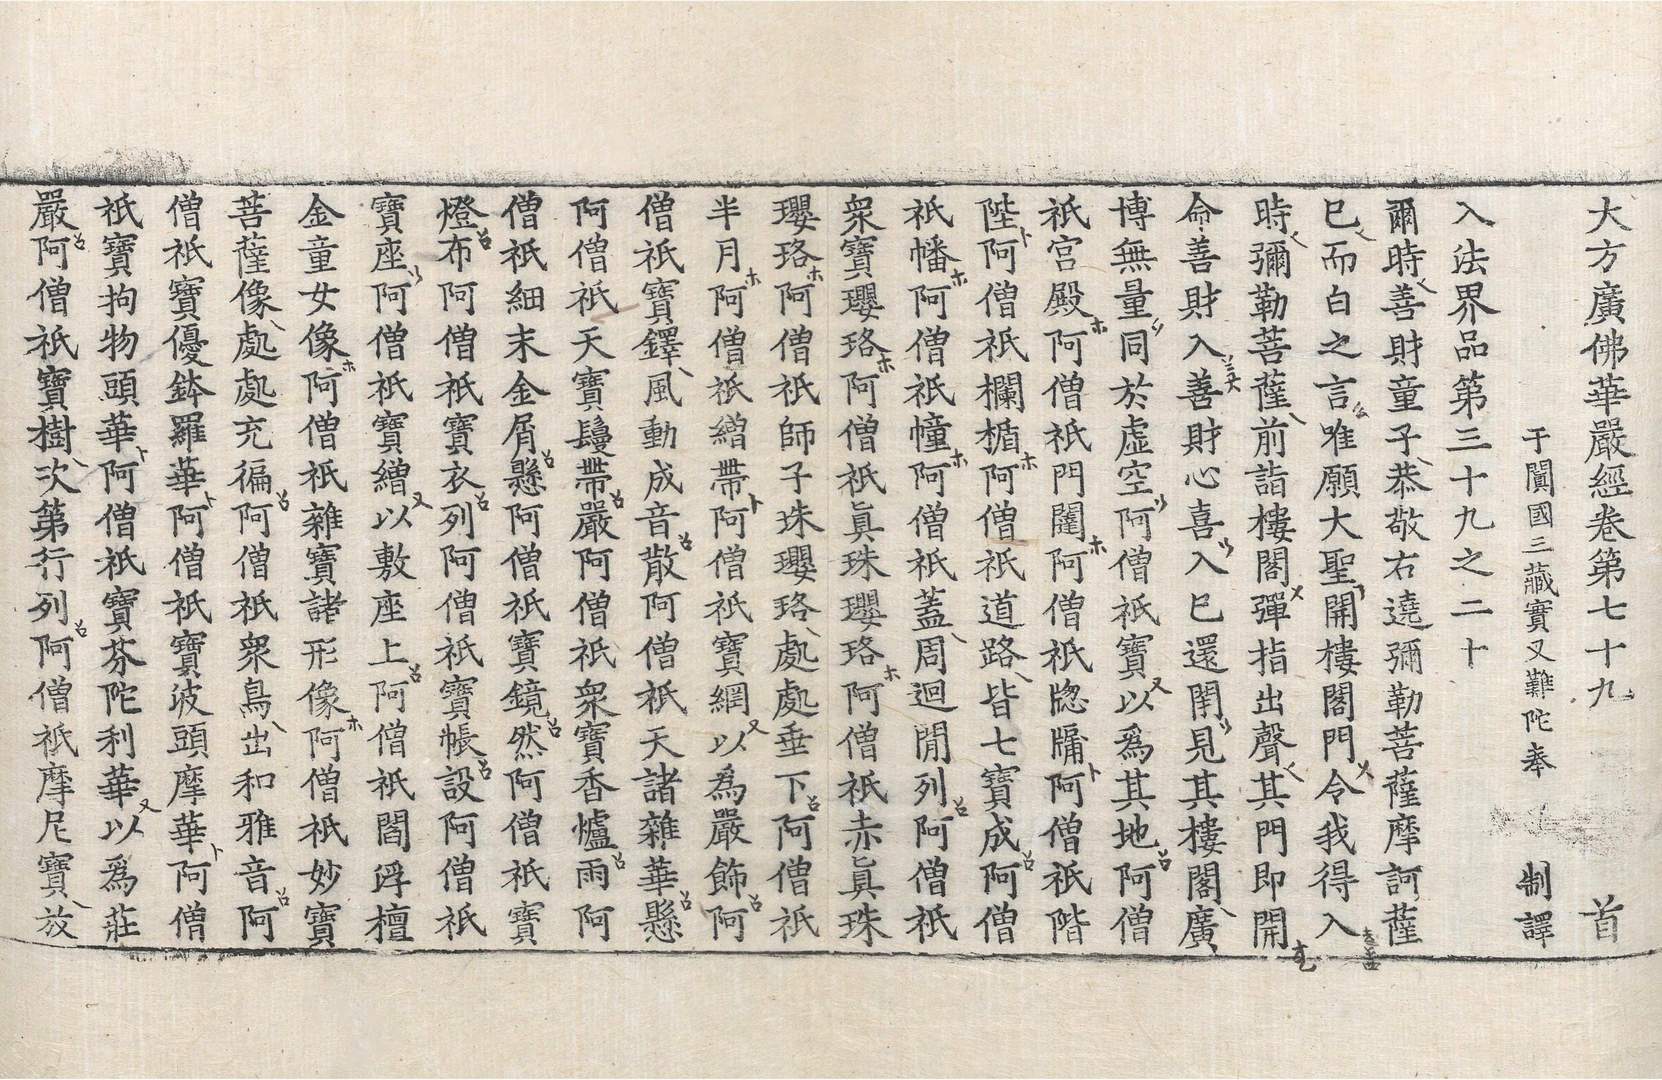 大方廣佛華嚴經卷第七十九　首
于闐國三藏實叉難陀奉　制譯
入法界品第三十九之二十
爾時善財童子恭敬右遶彌勒菩薩摩訶薩
已而白之言唯願大聖開樓閣門令我得入
時彌勒菩薩前詣樓閣彈指出聲其門即開
命善財入善財心喜入已還閇見其樓閣廣
博無量同於虛空阿僧祇寶以爲其地阿僧
祇宮殿阿僧祇門闥阿僧祇牎牖阿僧祇階
陛阿僧祇欄楯阿僧祇道路皆七寶成阿僧
祇幡阿僧祇幢阿僧祇蓋周迴閒列阿僧祇
衆寶瓔珞阿僧祇眞珠瓔珞阿僧祇赤眞珠
瓔珞阿僧祇師子珠瓔珞處處垂下阿僧祇
半月阿僧祇繒帶阿僧祇寶網以爲嚴飾阿
僧祇寶鐸風動成音散阿僧祇天諸雜華懸
阿僧祇天寶鬘帶嚴阿僧祇衆寶香爐雨阿
僧祇細末金屑懸阿僧祇寶鏡然阿僧祇寶
燈布阿僧祇寶衣列阿僧祇寶帳設阿僧祇
寶座阿僧祇寶繒以敷座上阿僧祇閻浮檀
金童女像阿僧祇雜寶諸形像阿僧祇妙寶
菩薩像處處充徧阿僧祇衆鳥出和雅音阿
僧祇寶優鉢羅華阿僧祇寶波頭摩華阿僧
祇寶拘物頭華阿僧祇寶芬陀利華以爲莊
嚴阿僧祇寶樹次第行列阿僧祇摩尼寶放